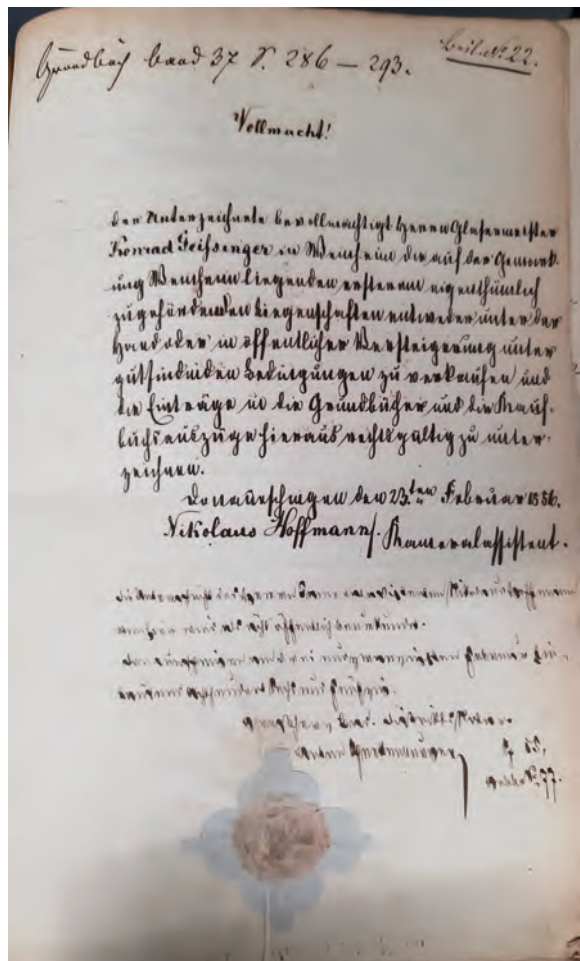 Grundbuch Band 37 S. 286 — 293.
Beil. Nr. 22.
Vollmacht!
Der Unterzeichnete bevollmächtigt Herrn Glasermeister
Konrad Geißinger in Weinheim die auf der Gemark-
ung Weinheim liegenden ersterem eigenthümlich
zugehörenden Liegenschaften entweder unter der
Hand oder in öffentlicher Versteigerung unter
gutfindenden Bedingungen zu verkaufen und
die Einträge in die Grundbücher und die Kauf-
buchsauszüge hieraus rechtsgültig zu unter-
zeichnen.
Donaueschingen den 23ten Februar 1856.
Nikolaus Hoffmann, Kameralassistent.
Die Unterschrift des Herrn Nikolaus Hoffmann
wird als ächt öffentlich beurkundet.
Donaueschingen am drei und zwanzigsten Februar Ein-
tausend achthundert sechs und fünfzig.
Distrikts Notar